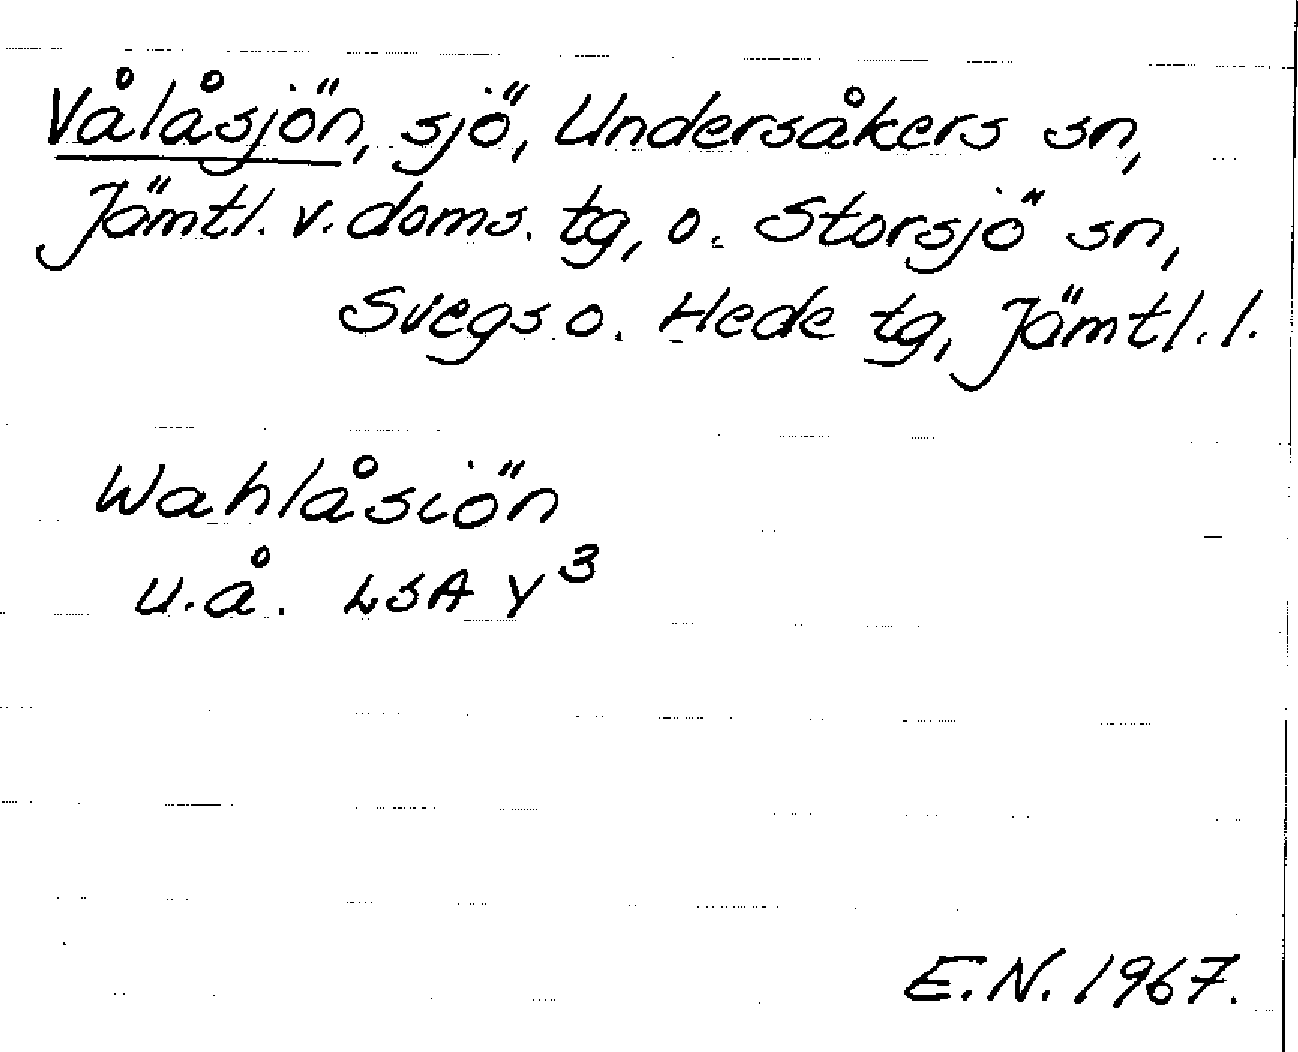 Vålåsjön, sjö, Undersåkers sn,
Jämtl. v. doms. tg, o. Storsjö sn,
Svegs o. Hede tg, Jämtl. l.
Wahlåsiön
u.å. LSA Y³
E.N. 1967.